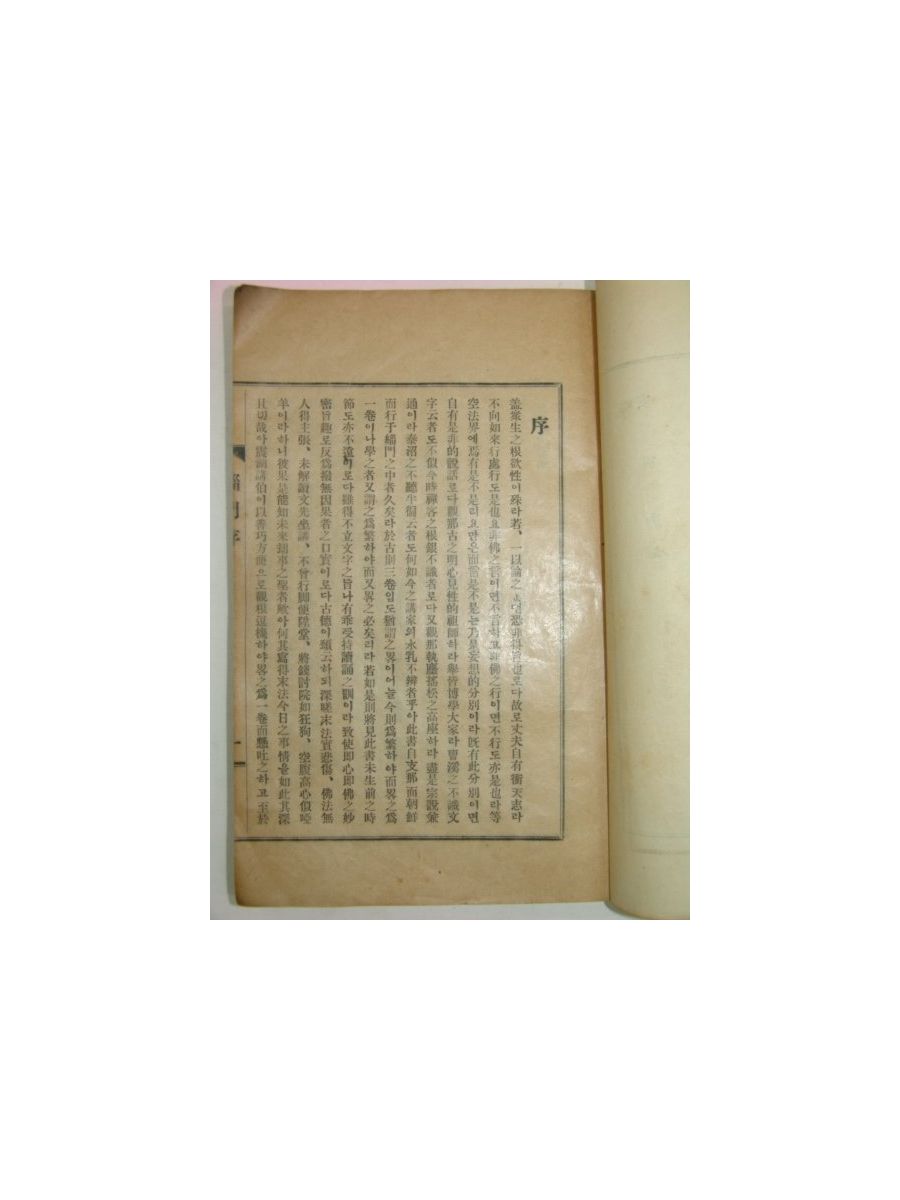 序
盖衆生之根欲性이殊라若、一以論之댄恐非得旨也로다故로丈夫自有衝天志라
不向如來行處行도是也요非佛之言이면不言하고非佛之行이면不行도亦是也라等
空法界에焉有是不是리요만은而當是不是는乃是妄想的分別이라旣有此分別이면
自有是非的說話로다觀那古之明心見性的祖師하라擧皆博學大家라曹溪之不識文
字云者도不似今時禪客之根銀不識者로다又觀那執麈搖松之高座하라盡是宗說兼
通이라泰沼之不聽牛個云者도何如今之講家의水乳不辨者乎아此書自支那而朝鮮
而行于緇門之中者久矣라於古則三卷임도猶謂之畧이어늘今則爲繁하야而畧之爲
一卷이나學之者又謂之爲繁하야而又畧之必矣리라若如是則將見此書未生前之時
節도亦不遠이로다雖得不立文字之旨나有乖受持讀誦之訓이라致使卽心卽佛之妙
密旨趣로反爲撥無因果者之口實이로다古德이頌云하되深嗟末法實悲傷、佛法無
人得主張、未解讀文先坐講、不曾行脚便陞堂、將錢討院如狂狗、空腹高心似啞
羊이라하니彼果是能知未來事之聖者歟아何其寫得末法今日之事情을如此其深
且切哉아震湖講伯이以善巧方便으로觀根逗機하야畧之爲一卷而懸吐之하고至於
緇門序
一